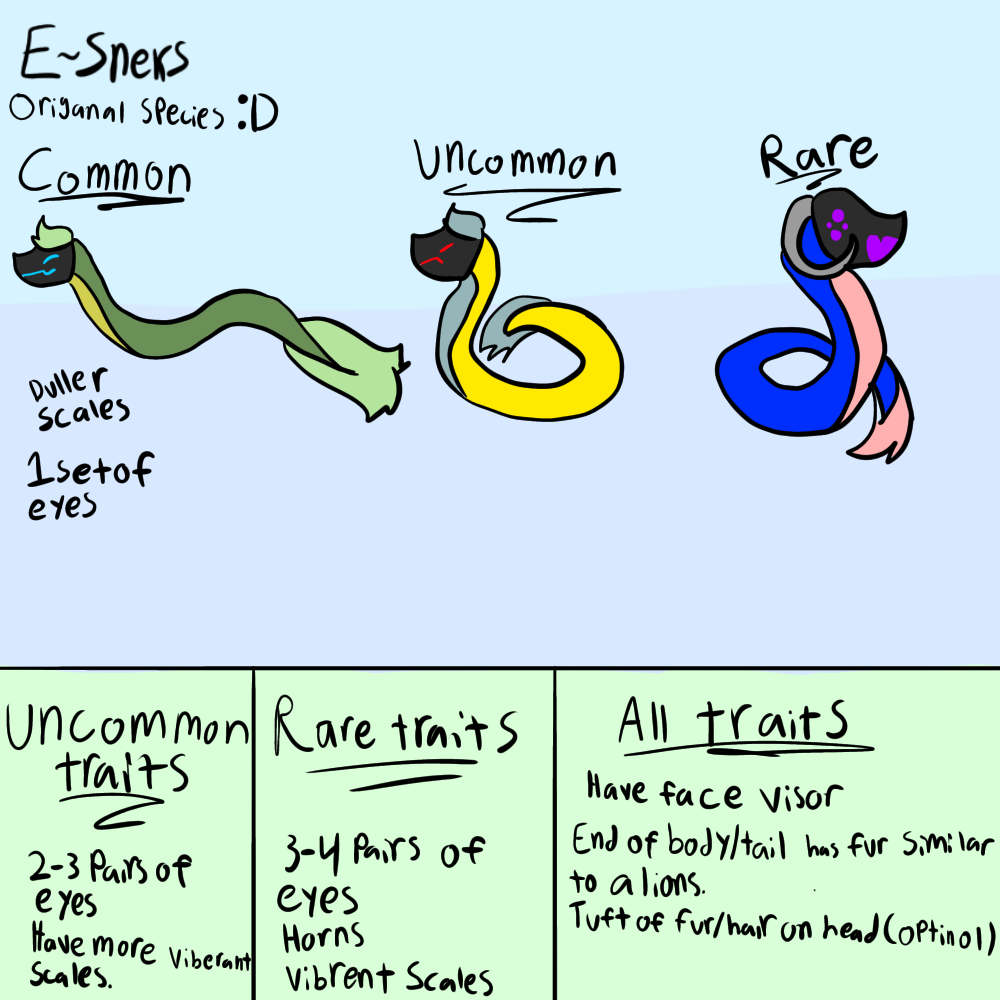 E~Sneks
Origanal species :D
Common
Uncommon
Rare
Duller
scales
1 set of
eyes
Uncommon
traits
2-3 Pairs of
eyes
Have more Viberant
Scales.
Rare traits
3-4 Pairs of
eyes
Horns
Vibrent Scales
All traits
Have face visor
End of body/tail has fur similar
to a lions.
Tuft of fur/hair on head (optinol)